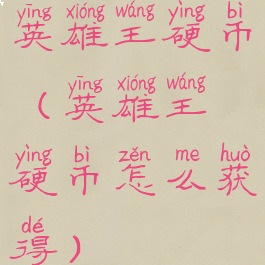 yīng xióng wáng yìng bì
英雄王硬币
yīng xióng wáng
(英雄王
yìng bì zěn me huò
硬币怎么获
dé
得)